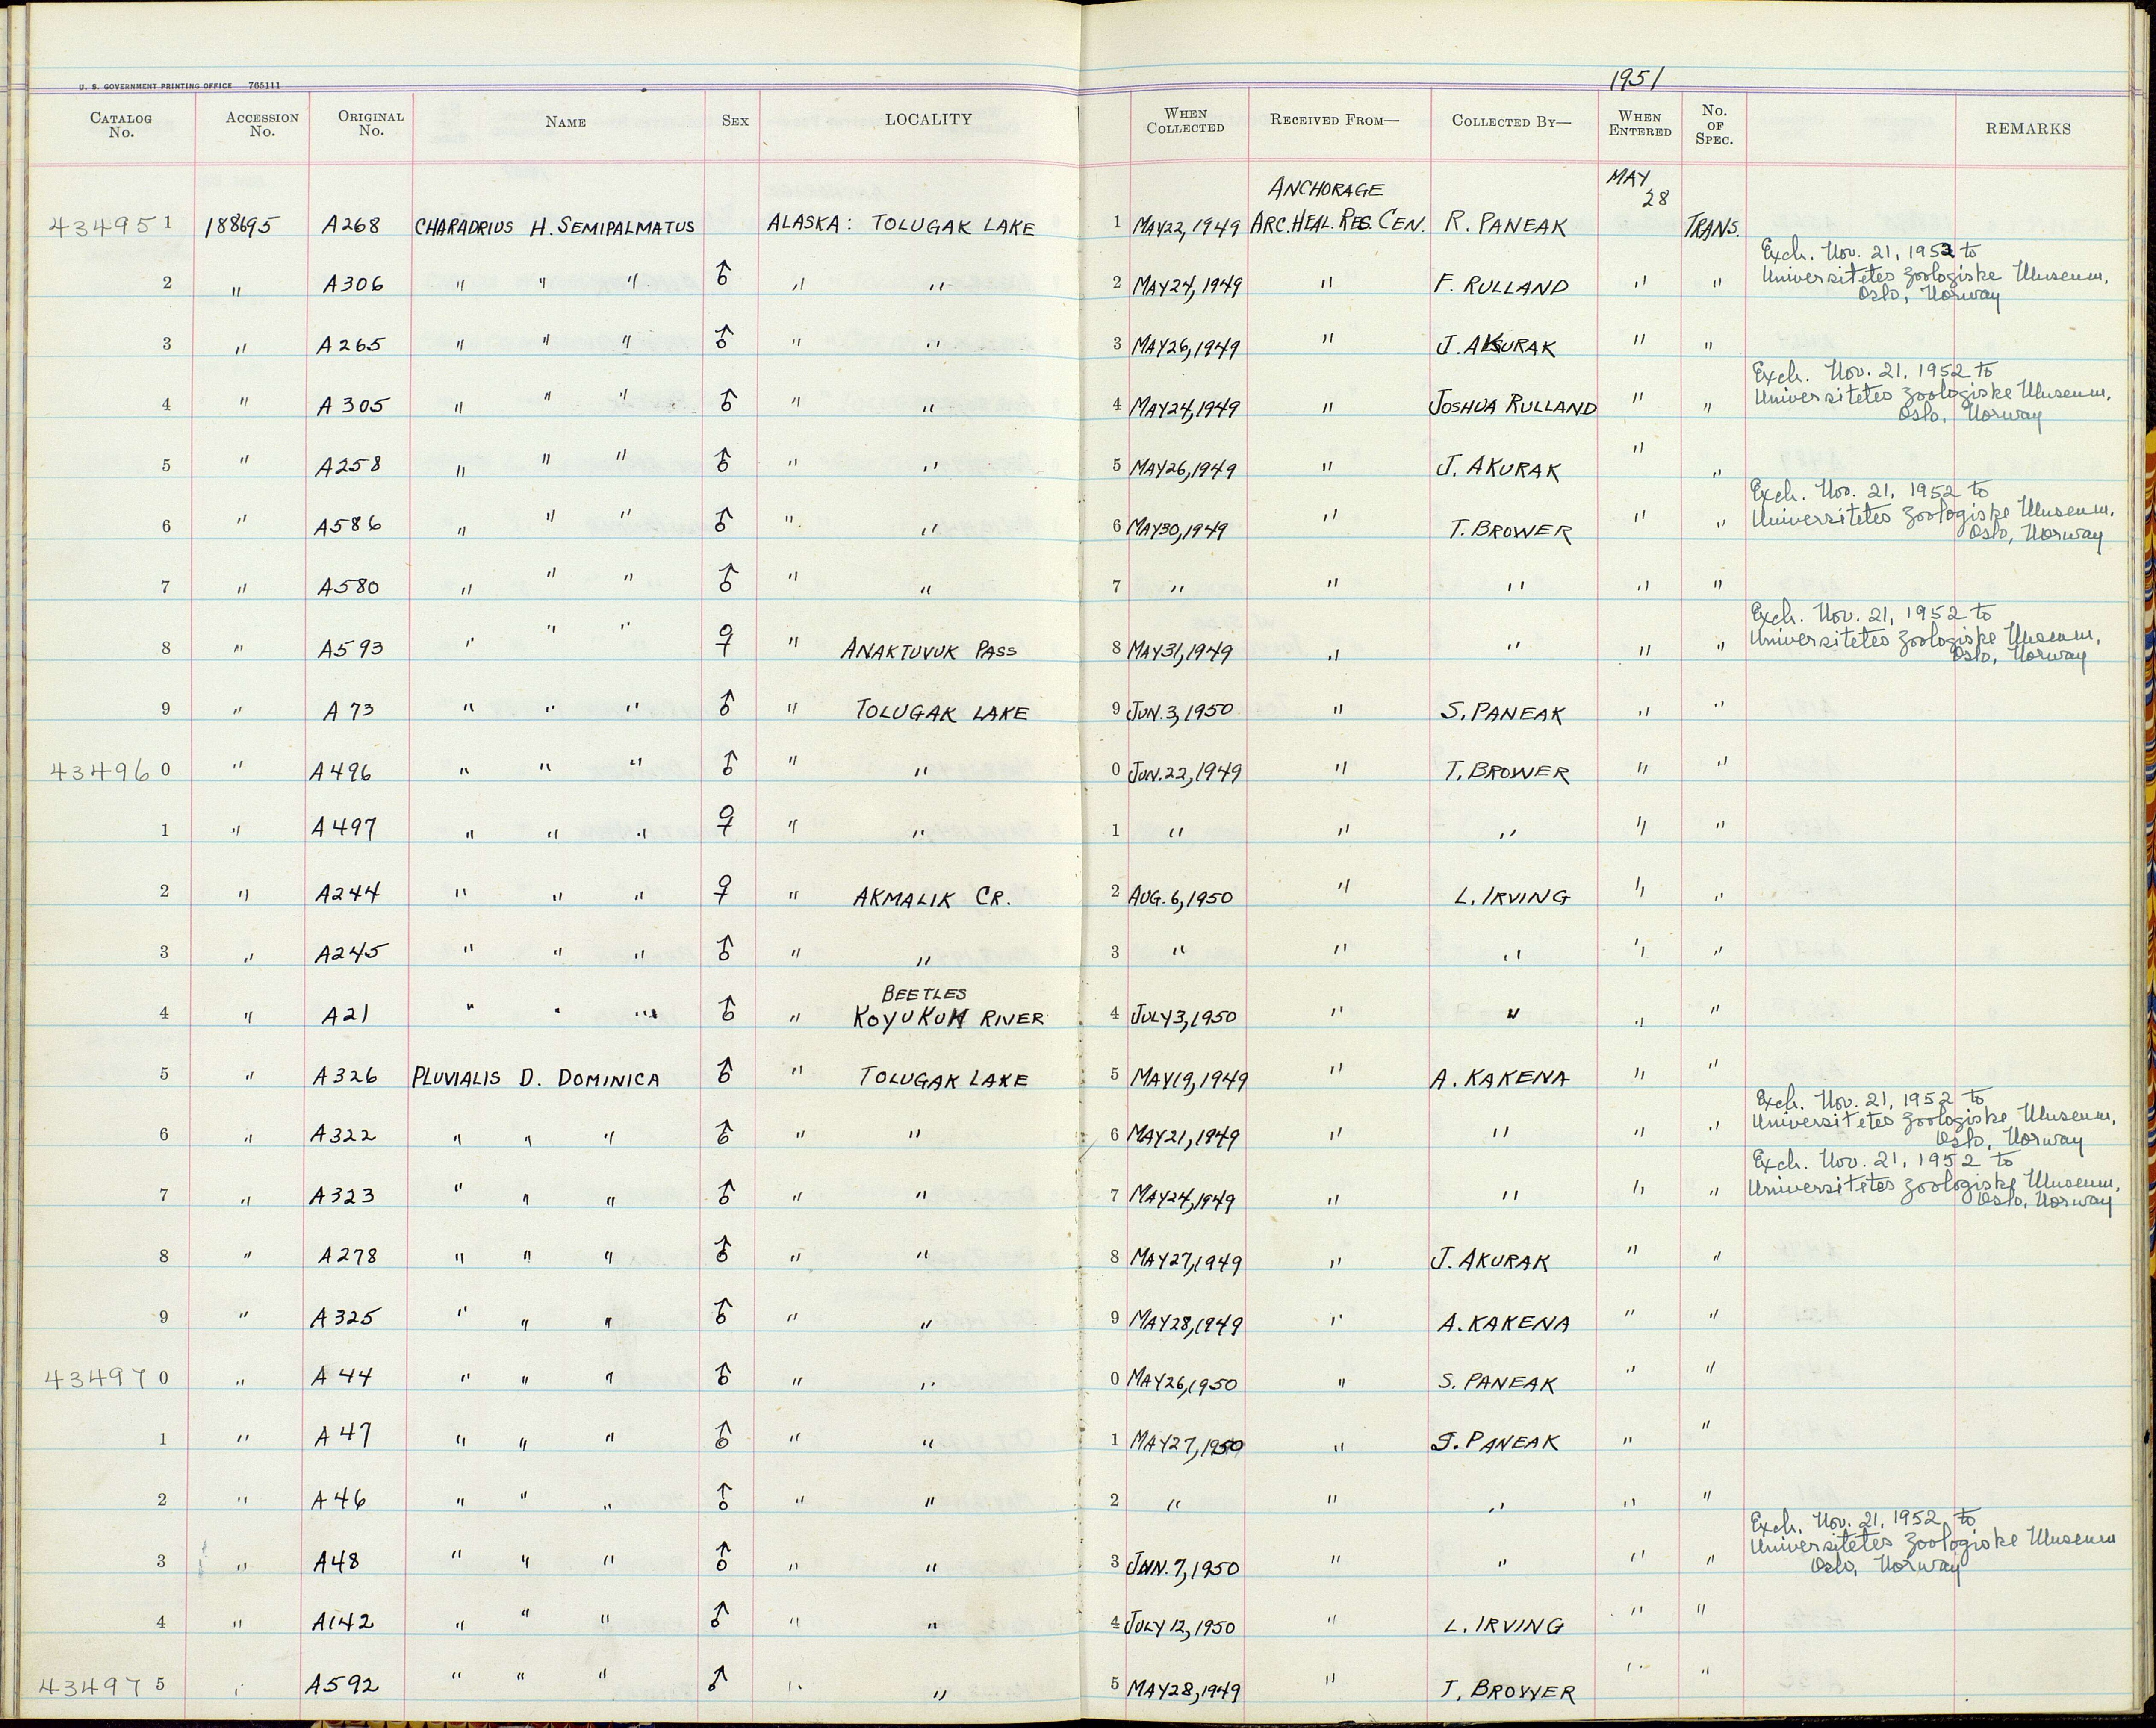 U. S. GOVERNMENT PRINTING OFFICE 765111
1951
CATALOG No. ACCESSION No. ORIGINAL No. NAME SEX LOCALITY WHEN COLLECTED RECEIVED FROM— COLLECTED BY— WHEN ENTERED No. OF SPEC. REMARKS
ANCHORAGE MAY 28
434951 188695 A268 CHARADRIUS H. SEMIPALMATUS ALASKA: TOLUGAK LAKE 1 MAY22, 1949 ARC. HEAL. RES. CEN. R. PANEAK TRANS.
Exch. Nov. 21, 1952 to
2 " A306 " " " ♂ " " 2 MAY24, 1949 " F. RULLAND " " Universitetes Zoologiske Museum,
Oslo, Norway
3 " A265 " " " ♂ " " 3 MAY26, 1949 " J. AKURAK " "
Exch. Nov. 21, 1952 to
4 " A305 " " " ♂ " " 4 MAY24, 1949 " JOSHUA RULLAND " " Universitetes Zoologiske Museum,
Oslo, Norway
5 " A258 " " " ♂ " " 5 MAY26, 1949 " J. AKURAK " "
Exch. Nov. 21, 1952 to
6 " A586 " " " ♂ " " 6 MAY30, 1949 " T. BROWER " " Universitetes Zoologiske Museum,
Oslo, Norway
7 " A580 " " " ♂ " " 7 " " " " "
Exch. Nov. 21, 1952 to
8 " A593 " " " ♀ " ANAKTUVUK PASS 8 MAY31, 1949 " " " " Universitetes Zoologiske Museum,
Oslo, Norway
9 " A73 " " " ♂ " TOLUGAK LAKE 9 JUN. 3, 1950 " S. PANEAK " "
434960 " A496 " " " ♂ " " 0 JUN. 22, 1949 " T. BROWER " "
1 " A497 " " " ♀ " " 1 " " " " "
2 " A244 " " " ♀ " AKMALIK CR. 2 AUG. 6, 1950 " L. IRVING " "
3 " A245 " " " ♂ " " 3 " " " " "
BEETLES
4 " A21 " " " ♂ " KOYUKUK RIVER 4 JULY 3, 1950 " " " "
5 " A326 PLUVIALIS D. DOMINICA ♂ " TOLUGAK LAKE 5 MAY19, 1949 " A. KAKENA " "
Exch. Nov. 21, 1952 to
6 " A322 " " " ♂ " " 6 MAY21, 1949 " " " " Universitetes Zoologiske Museum,
Oslo, Norway
Exch. Nov. 21, 1952 to
7 " A323 " " " ♂ " " 7 MAY24, 1949 " " " " Universitetes Zoologiske Museum,
Oslo, Norway
8 " A278 " " " ♂ " " 8 MAY27, 1949 " J. AKURAK " "
9 " A325 " " " ♂ " " 9 MAY28, 1949 " A. KAKENA " "
434970 " A44 " " " ♂ " " 0 MAY26, 1950 " S. PANEAK " "
1 " A47 " " " ♂ " " 1 MAY27, 1950 " S. PANEAK " "
2 " A46 " " " ♂ " " 2 " " " " "
Exch. Nov. 21, 1952 to
3 " A48 " " " ♂ " " 3 JUN. 7, 1950 " " " " Universitetes Zoologiske Museum
Oslo, Norway
4 " A142 " " " ♂ " " 4 JULY 12, 1950 " L. IRVING " "
434975 " A592 " " " ♂ " " 5 MAY28, 1949 " T. BROWER " "